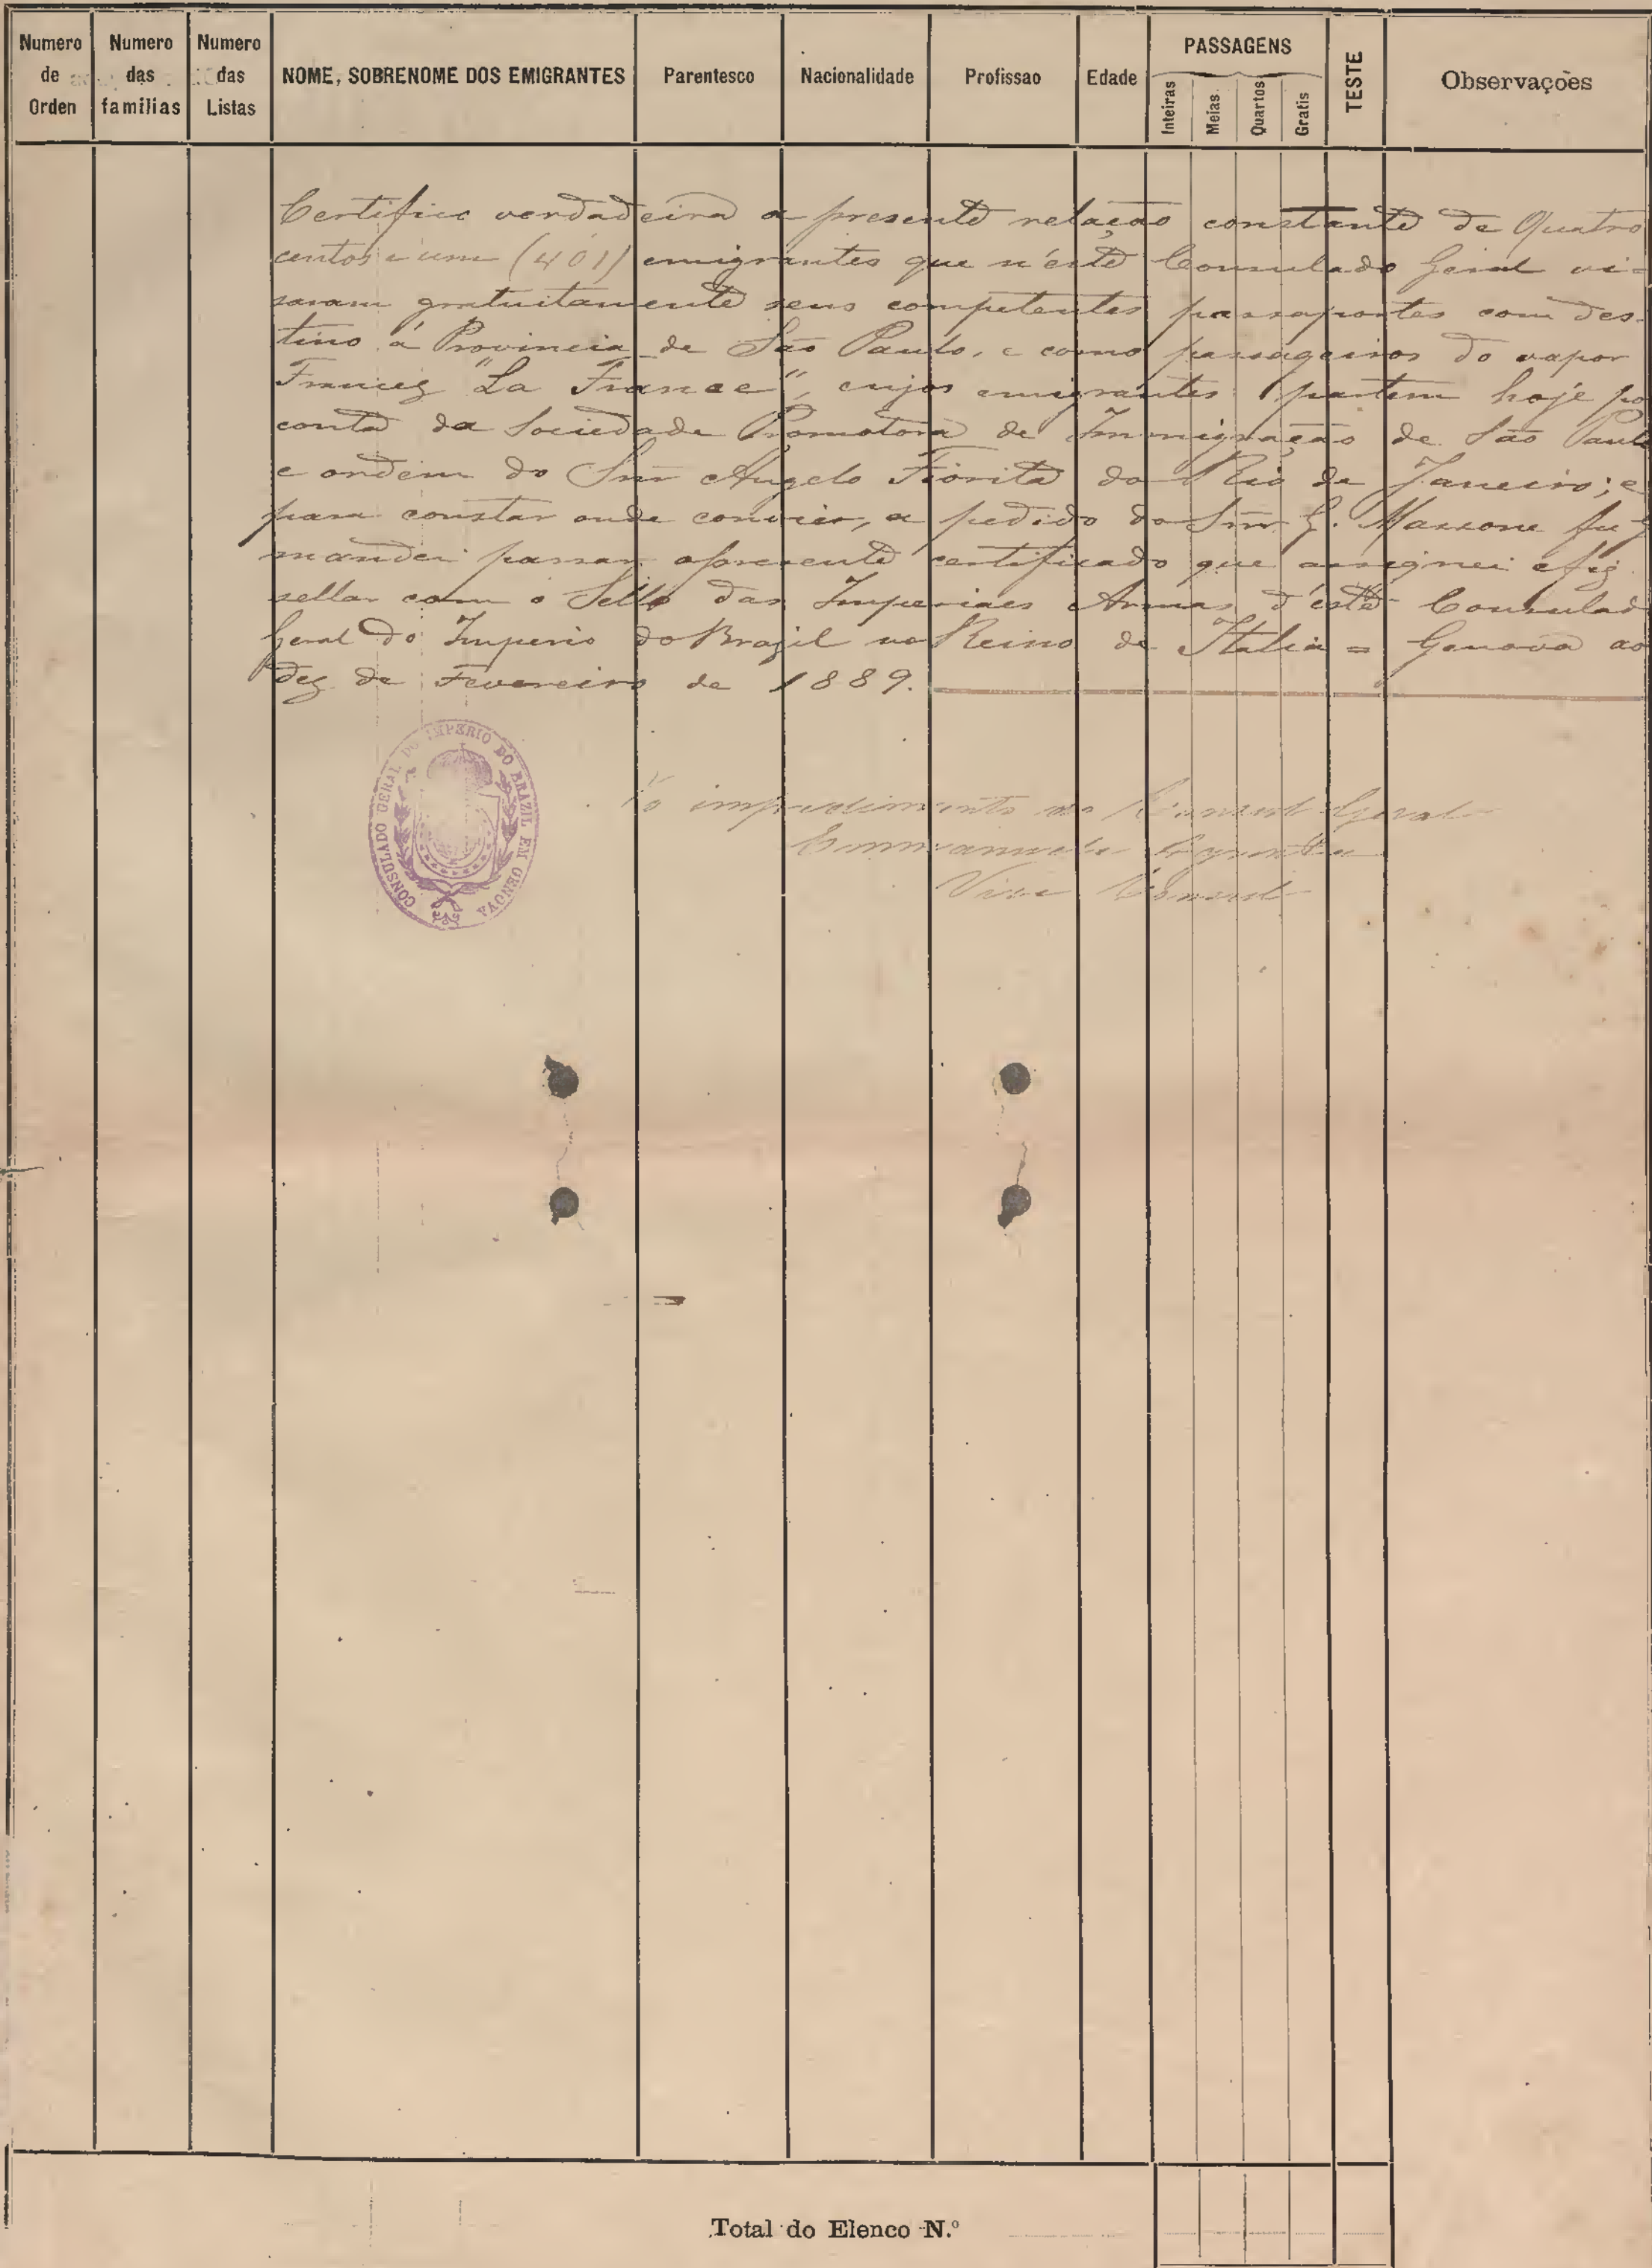 Numero de Orden
Numero das familias
Numero das Listas
NOME, SOBRENOME DOS EMIGRANTES
Parentesco
Nacionalidade
Profissao
Edade
PASSAGENS
Inteiras
Meias
Quartos
Gratis
TESTE
Observações
Certifico verdadeira a presente relação constante de Quatro
centos e um (401) emigrantes que n'este Consulado Geral vi=
saram gratuitamente seus competentes passaportes com des-
tino á Provincia de São Paulo, e como passageiros do vapor
Francez "La France", cujos emigrantes partem hoje po
conta da Sociedade Promotora de Immigração de São Paul
e ordem do Snr Angelo Fiorita do Rio de Janeiro; e
para constar onde convier, a pedido do Snr G. Massone
mandei passar apresente certificado que assignei efiz
sellar com o Sello das Imperiaes Armas d'este Consulad
Geral do Imperio do Brazil no Reino de Italia = Genova ao
dez de Fevereiro de 1889.
CONSULADO GERAL DO IMPERIO DO BRAZIL EM GENOVA
No impedimento do Consul Geral
Vice Consul
Total do Elenco N.º